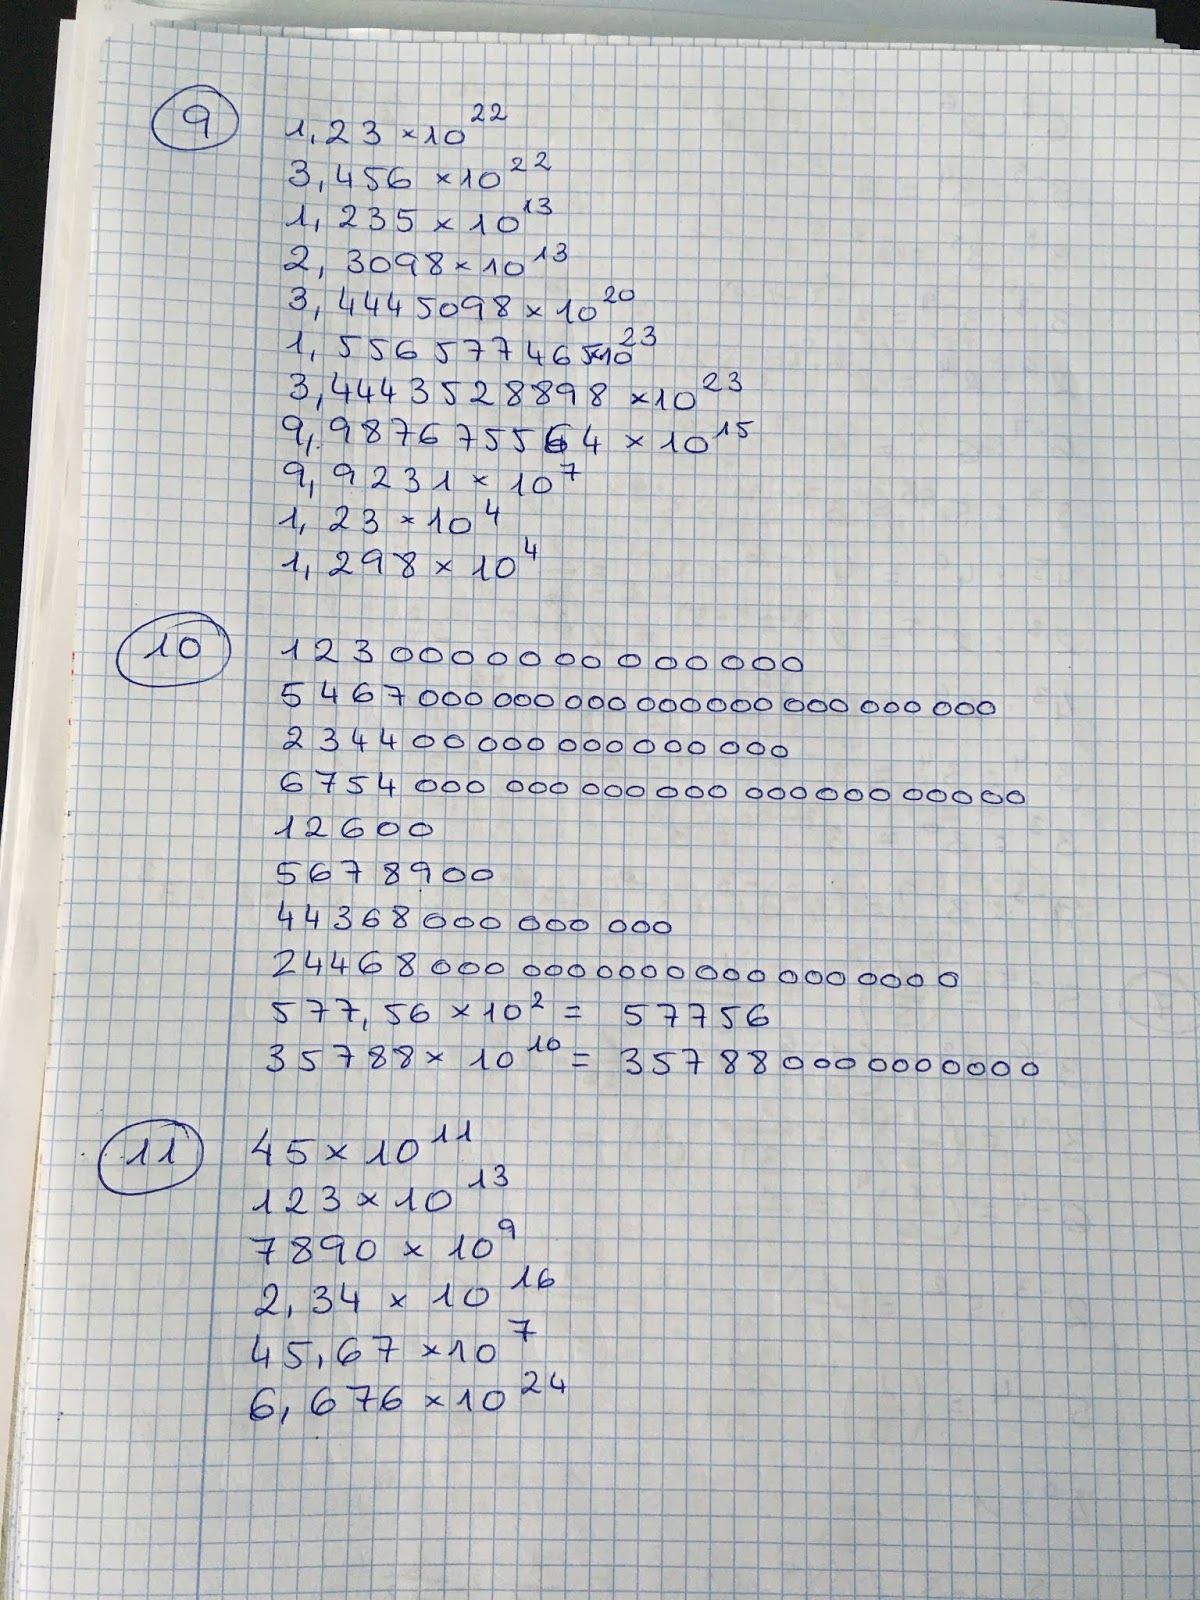 9
1,23 × 10²²
3,456 × 10²²
1,235 × 10¹³
2,3098 × 10¹³
3,4445098 × 10²⁰
1,556577465×10²³
3,4443528898 × 10²³
9,9876755564 × 10¹⁵
9,9231 × 10⁷
1,23 × 10⁴
1,298 × 10⁴
10
1230000000000000
5467000000000000000000000000
234400000000000000
675400000000000000000000000
12600
5678900
44368000 000 000
24468000 0000000000000000
577,56 × 10² = 57756
35788 × 10¹⁰ = 357880000000000
11
45 × 10¹¹
123 × 10¹³
7890 × 10⁹
2,34 × 10¹⁶
45,67 × 10⁷
6,676 × 10²⁴